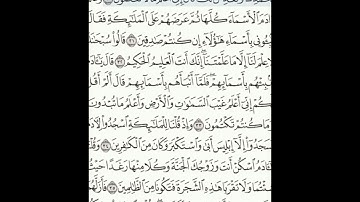 ـادَمَ ٱلْأَسْمَآءَ كُلَّهَا ثُمَّ عَرَضَهُمْ عَلَى ٱلْمَلَٰٓئِكَةِ فَقَالَ
ـبِـُٔونِى بِأَسْمَآءِ هَٰٓؤُلَآءِ إِن كُنتُمْ صَٰدِقِينَ ٣١ قَالُوا۟ سُبْحَـ
عِلْمَ لَنَآ إِلَّا مَا عَلَّمْتَنَآ إِنَّكَ أَنتَ ٱلْعَلِيمُ ٱلْحَكِيمُ ٣٢ قَالَ يَٰٓـَٔادَ
ـبِئْهُم بِأَسْمَآئِهِمْ فَلَمَّآ أَنۢبَأَهُم بِأَسْمَآئِهِمْ قَالَ أَلَمْ أَقُـ
ـكُمْ إِنِّىٓ أَعْلَمُ غَيْبَ ٱلسَّمَٰوَٰتِ وَٱلْأَرْضِ وَأَعْلَمُ مَا تُبْدُو
مَا كُنتُمْ تَكْتُمُونَ ٣٣ وَإِذْ قُلْنَا لِلْمَلَٰٓئِكَةِ ٱسْجُدُوا۟ لِـ
سَجَدُوٓا۟ إِلَّآ إِبْلِيسَ أَبَىٰ وَٱسْتَكْبَرَ وَكَانَ مِنَ ٱلْكَٰفِرِينَ ٣٤
يَٰٓـَٔادَمُ ٱسْكُنْ أَنتَ وَزَوْجُكَ ٱلْجَنَّةَ وَكُلَا مِنْهَا رَغَدًا حَيْثُ
ـئْتُمَا وَلَا تَقْرَبَا هَٰذِهِ ٱلشَّجَرَةَ فَتَكُونَا مِنَ ٱلظَّٰلِمِينَ ٣٥ فَأَزَلَّهُمَا